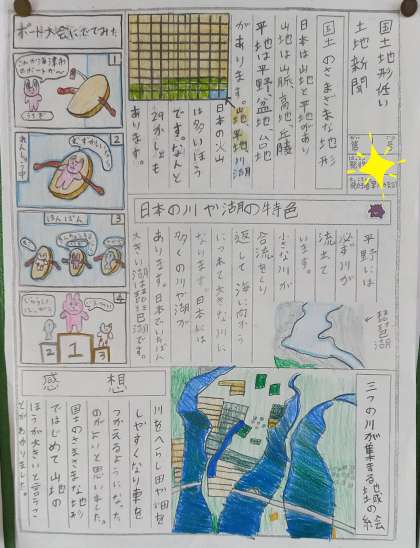 国土地形低い
土地新聞
国土のさまざまな地形
日本は山地と平地があり
山地は山脈、高地、丘陵
平地は平野、盆地、台地
があります。
山地 平地 川 湖
日本の火山
は多いほう
です。なんと
29かしょも
あります。
ボード大会にでてみた
1
うさぎ
2
れんしゅう中
3
ほんばん
4
2
1
3
日本の川や湖の特色
平野には
必ず川が
流出て
います。
小さな川が
合流をくり
返して海に向かう
につれて大きな川に
なります。日本には
多くの川や湖が
あります。日本でいちばん
大きい湖は琵琶湖です。
←琵琶湖
三つの川が集まる地域の絵
感想
川をへらし田や畑を
しやすくなり車を
つかえるようになった
のがよいと思いました。
国土のさまざまな地形
ではじめて山地の
ほうが大きいと言うこ
とがわかりました。